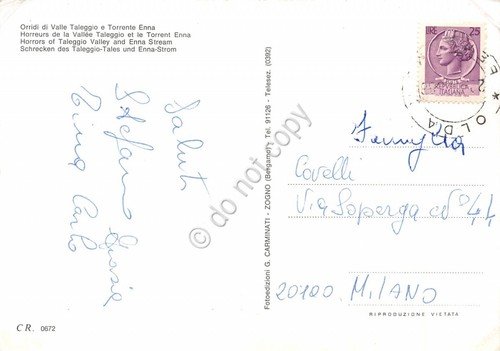 Orridi di Valle Taleggio e Torrente Enna
Horreurs de la Vallée Taleggio et le Torrent Enna
Horrors of Taleggio Valley and Enna Stream
Schrecken des Taleggio-Tales und Enna-Strom
Saluti
Stefano Giosié
Tino Carlo
CR. 0672
Fotoedizioni G. CARMINATI - ZOGNO (Bergamo) Tel. 91126 - Telesez. (0392)
do not copy
LIRE 25
REPUBBLICA
ITALIANA
OLDA
Famiglia
Covelli
Via Soperga N° 41
20100 MILANO
RIPRODUZIONE VIETATA